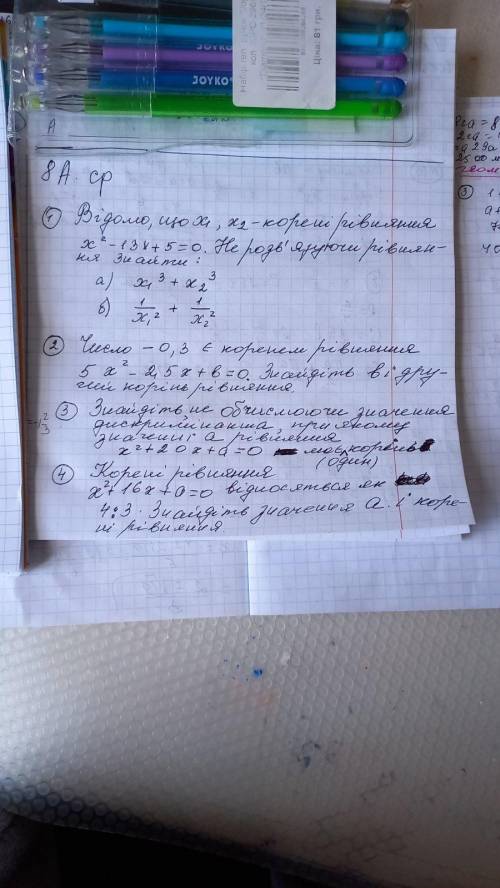 JOYKO
JOYKO
Ціна: 81 грн.
A
8А ср
① Відомо, що x₁, x₂ - корені рівняння
x² - 13x + 5 = 0. Не розв'язуючи рівнян-
ня знайти:
а) x₁³ + x₂³
б) 1/x₁² + 1/x₂²
② Число - 0,3 є коренем рівняння
5x² - 2,5x + в = 0. Знайдіть в і дру-
гий корінь рівняння
③ Знайдіть не обчислюючи значення
дискримінанта, при якому
значенні а рівняння
x² + 20x + a = 0 має корень
(один)
④ Корені рівняння
x² + 16x + a = 0 відносяться як
4:3. Знайдіть значення а і коре-
ні рівняння.